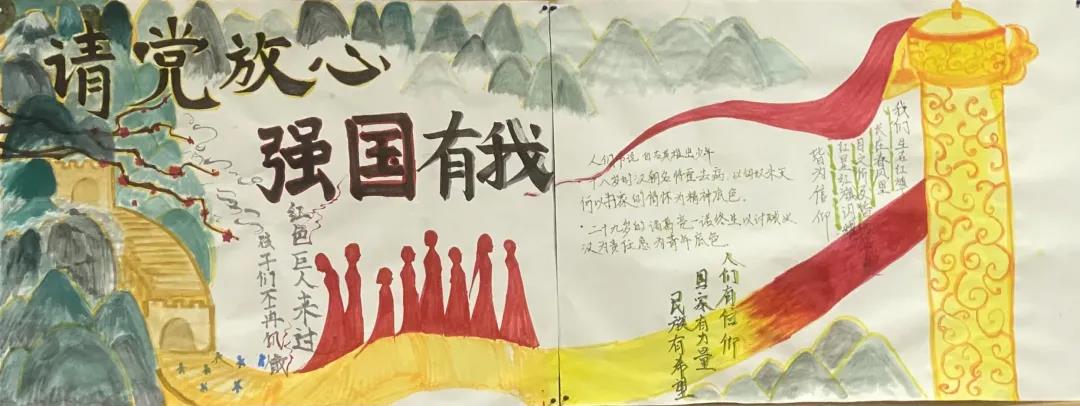 请党放心
强国有我
红色巨人来过
孩子们不再饥饿
人们常说自古英雄出少年
十八岁时汉朝名将霍去病，以匈奴未灭
何以为家的情怀为精神底色。
·二十九岁的诸葛亮一诺终生以讨贼兴
汉为责任意为青年底色
人们有信仰
国家有力量
民族有希望
我们生在红旗
长在春风里
目之所及皆
红星红旗
皆为信仰